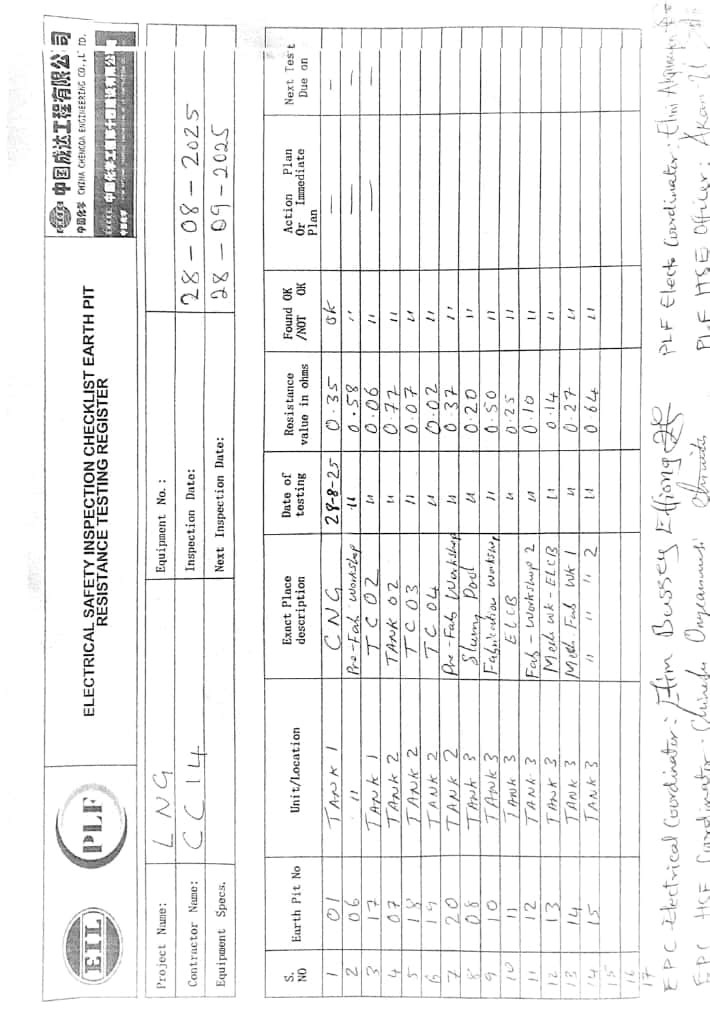 EIL
PLF
ELECTRICAL SAFETY INSPECTION CHECKLIST EARTH PIT
RESISTANCE TESTING REGISTER
中国化学 中国成达工程有限公司
CHINA CHENGDA ENGINEERING CO., LTD.
Project Name: LNG Equipment No.:
Contractor Name: CC14 Inspection Date: 28-08-2025
Equipment Specs. Next Inspection Date: 28-09-2025
S. NO Earth Pit No Unit/Location Exact Place description Date of testing Resistance value in ohms Found OK /NOT OK Action Plan Or Immediate Plan Next Test Due on
1 01 TANK 1 CNG 28-8-25 0.35 OK — —
2 06 " Pre-Fab. Workshop " 0.58 " — —
3 17 TANK 1 TC 02 " 0.06 " — —
4 07 TANK 2 TANK 02 " 0.77 "
5 18 TANK 2 TC 03 " 0.07 "
6 19 TANK 2 TC 04 " 0.02 "
7 20 TANK 2 Pre-Fab Workshop " 0.37 "
8 08 TANK 3 Slurry Pool " 0.20 "
9 10 TANK 3 Fabrication Workshop " 0.50 "
10 11 TANK 3 ELCB " 0.25 "
11 12 TANK 3 Fab-Workshop 2 " 0.10 "
12 13 TANK 3 Mech Wk-ELCB " 0.14 "
13 14 TANK 3 Mech. Fab WK 1 " 0.27 "
14 15 TANK 3 " " " 2 " 0.64 "
15
16
17
EPC Electrical Coordinator: Etim Bussey Effiong PLF Elects Coordinator: Etini
EPC HSE Coordinator: PLF HSE Officer: Akan